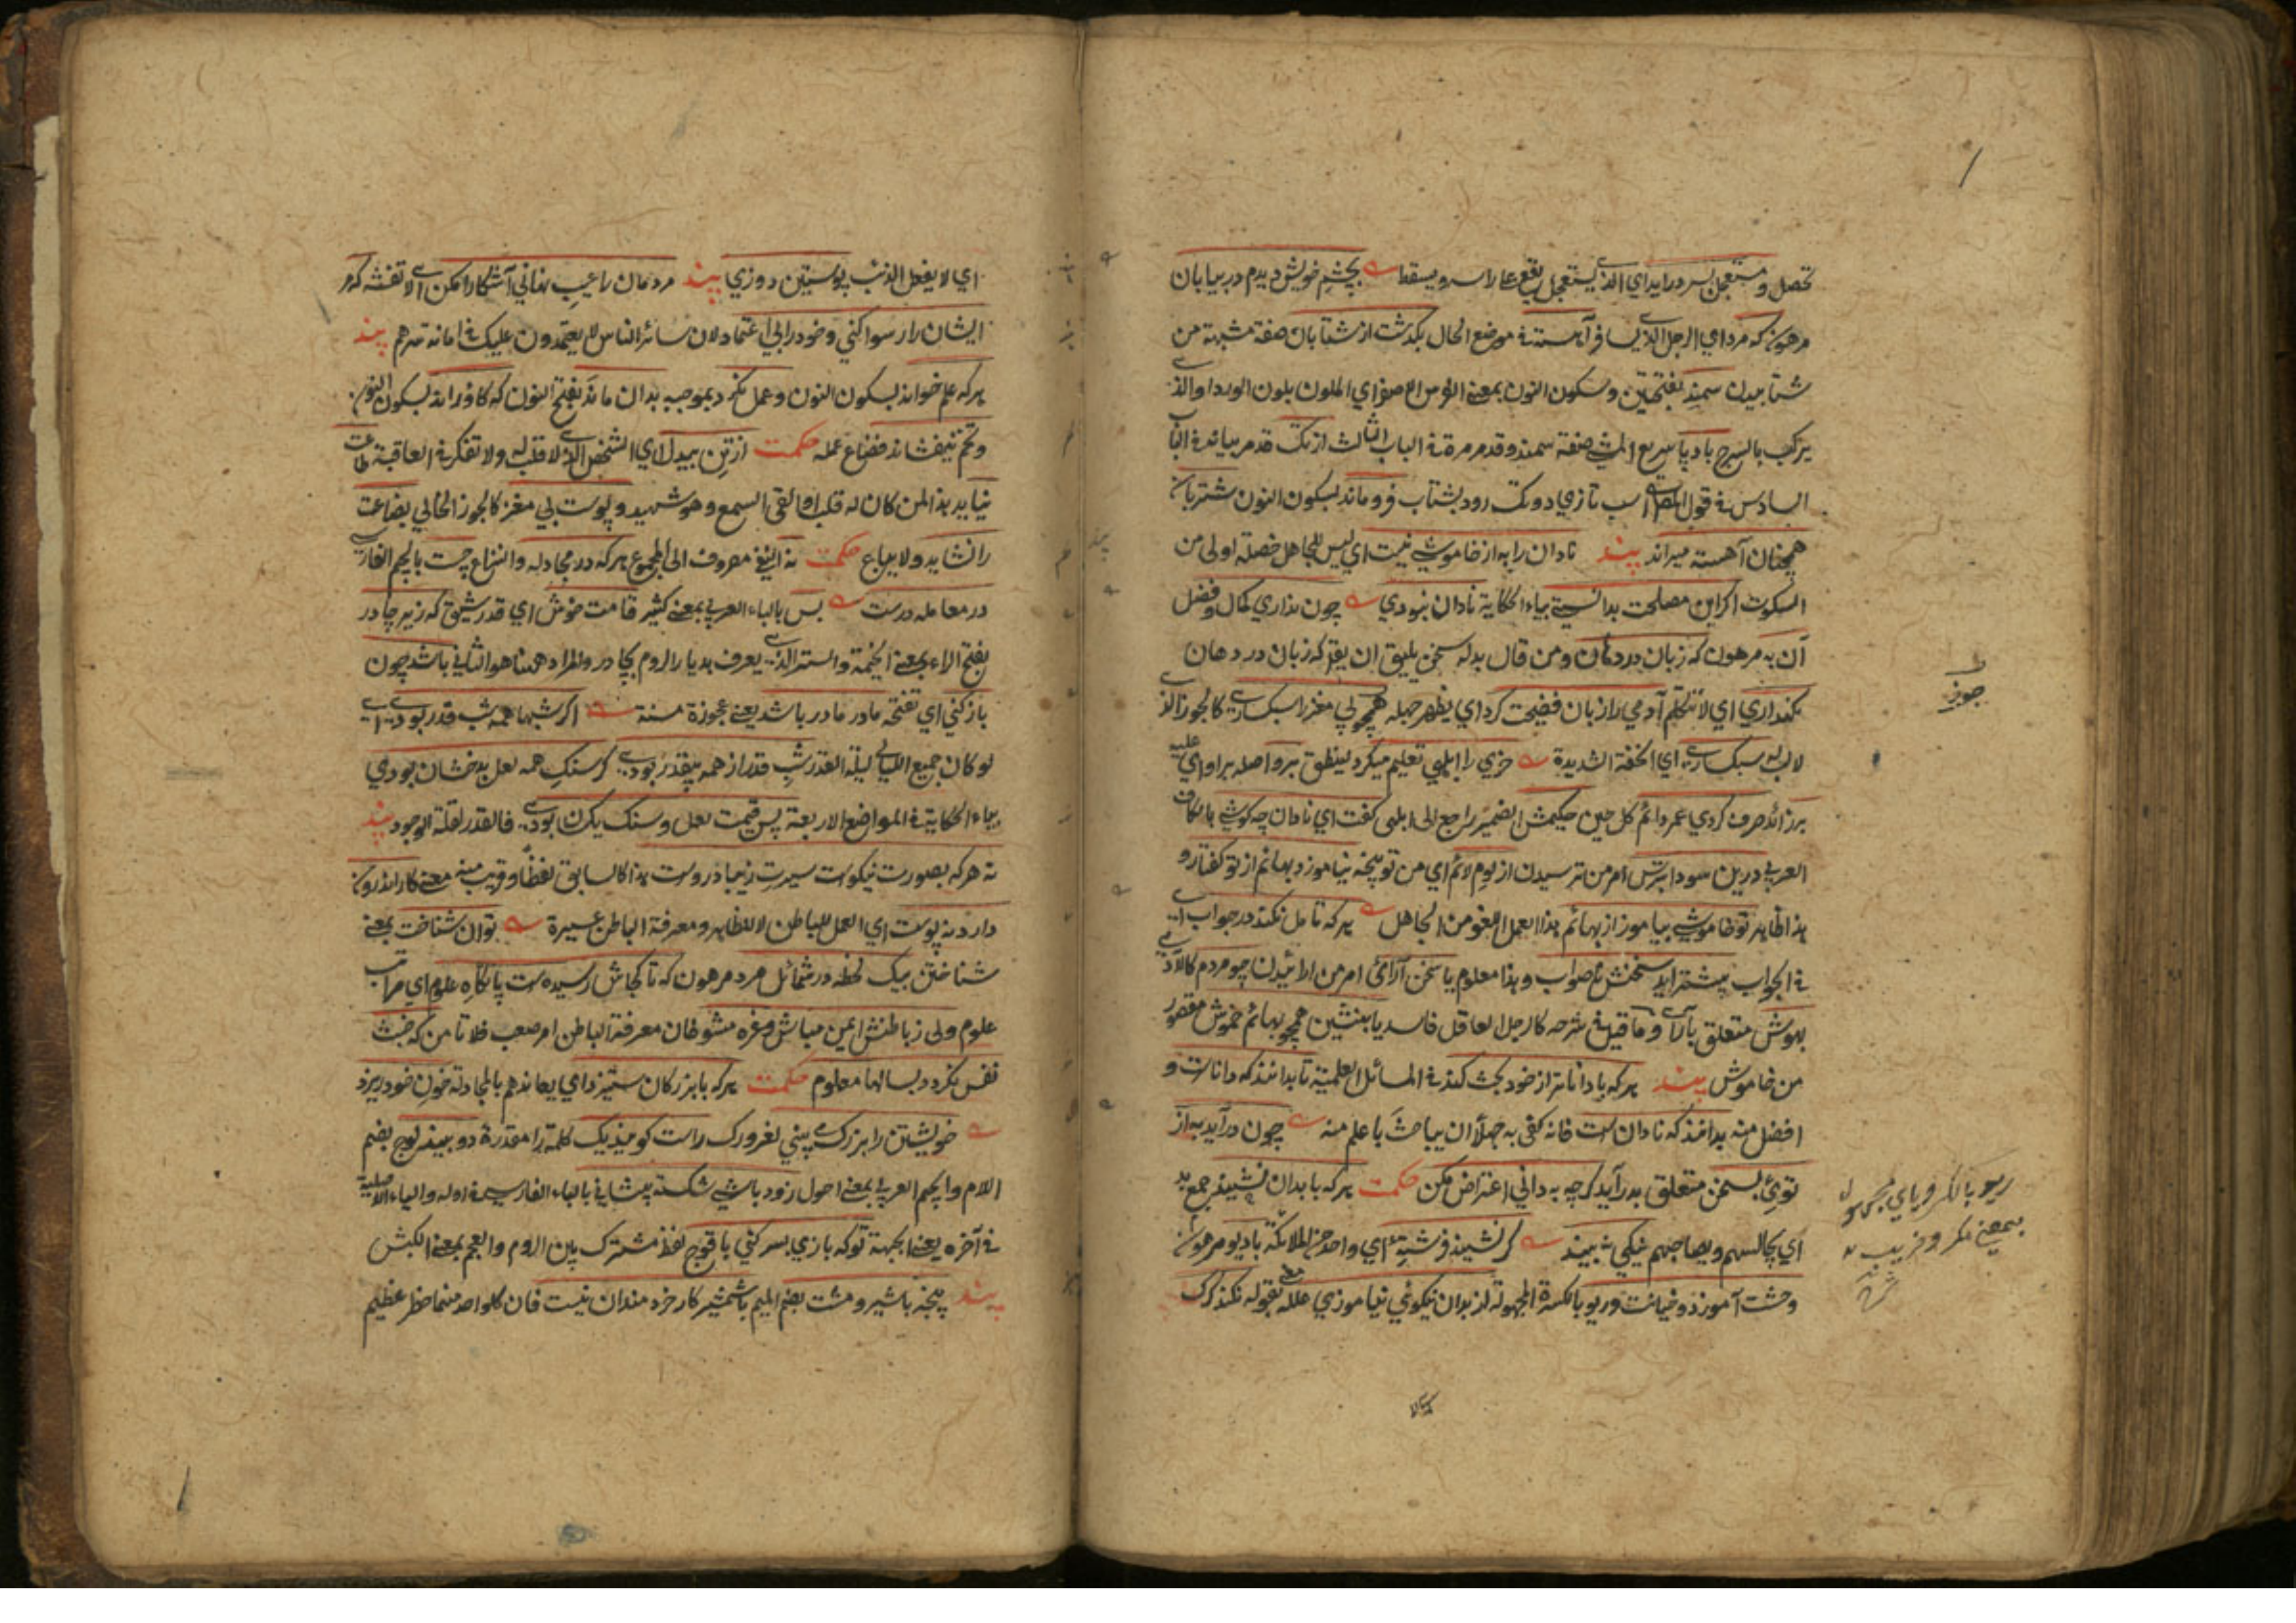 تحصل و مستعجل بسر درايد اي الذي يستعجل يقع علي راسه و يسقط بچشم خويش ديدم در بيابان
مرهون كه مرد اي الرجل الذي يسافر آهسته في موضع الحال بگذشت از شتابان صفة مشبهة من
شتابيدن سمند بفتحتين و سكون النون بمعني الفرس الاصفر اي الملون بلون الورد والذي
يركب بالسرج باد پا سريع المشي صفة سمند و قد مر مرة في الباب الثالث از تك قدم بماند في الباب
السادس في قول المص اسب تازي دو تك رود بشتاب فرو ماند بسكون النون شتربان
همچنان آهسته ميراند پند نادان را به از خاموشي نيست اي ليس للجاهل خصلة اولي من
السكوت اگر اين مصلحت بدانستي بياء الحكاية نادان نبودي چون نداري كمال و فضل
آن به مرهون كه زبان در دهان و من قال بدله سخن يليق ان يقر كه زبان در دهان
نگهداري اي لا تتكلم آدمي را زبان فضيحت كرد اي يظهر جهله همچو بي مغز را سبكساري كالجوز الذي
لا لب له سبكساري اي الخفة الشديدة خري را ابلهي تعليم ميكرد لينطق برو اصله بر او اي عليه
بر زائد صرف كردي عمر دائم كل حين حكيمش الضمير راجع الي ابلهي گفت اي نادان چه كوشي بالكاف
العربي درين سودا بترس امر من ترسيدن از لوم لائم اي من توبيخه نياموزد بهائم از تو گفتار و
هذا ظاهر تو خاموشي بياموز از بهائم هذا العمل اللغو من الجاهل هر كه تامل نكند در جواب اي
في الجواب بيشتر ايد سخنش ناصواب و هذا معلوم يا سخن آراي امر من ارائيدن چو مردم كالادمي
بهوش متعلق بآراي و ما قيل في شرحه كالرجل العاقل فاسد يا بنشين همچو بهائم خموش مقصور
من خاموش پند هر كه با داناتر از خود بحث كند في المسائل العلمية تا بدانند كه داناست و
افضل منه بدانند كه نادان است فانه كفي به جهلا ان يباحث با علم منه چون درآيد به از
توئي بسخن متعلق بدرآيد گرچه به داني اعتراض مكن حكمت هر كه با بدان نشيند جمع بد
اي يجالسهم و يصاحبهم نيكي نبيند گر نشيند فرشتة اي واحد من الملائكة با ديو مرهون
وحشت آموزد و خيانت و ريو بالكسرة المجهولة از بدان نيكوئي نياموزي علله بقوله نكند گرگ
جوز
ريو بالكسر و ياي مجهول
بمعني مكر و فريب
اي لا يفعل الذئب پوستين دوزي پند مردمان را عيب نهاني آشكارا مكن اي لا تفشه كه مر
ايشان را رسوا كني و خود را بي اعتماد لان سائر الناس لا يعتمدون عليك في امانة سرهم پند
هر كه علم خواند بسكون النون و عمل نكرد بموجبه بدان ماند بفتح النون كه گاو راند بسكون النون
و تخم نيفشاند فضاع عمله حكمت از تن بيدل اي الشخص الذي لا قلب له ولا تفكر في العاقبة طاعت
نيايد هذا لمن كان له قلب او القي السمع و هو شهيد و پوست بي مغز كالجوز الخالي بضاعت
را نشايد ولا يباع حكمت نه النفي مصروف الي المجموع هر كه در مجادله و النزاع چست بالجيم الفارسي
در معامله درست بس بالباء العربي بمعني كثير قامت خوش اي قد رشيق كه زير چادر
بفتح الراء بمعني الخيمة والستر الذي يعرف بديار الروم بچادر والمراد ههنا هو الثاني باشد چون
باز كني اي تفتحه مادر مادر باشد يعني عجوزة مسنة اگر شبها همه شب قدر بودي اي
لو كان جميع الليالي ليلة القدر شب قدر از همه بيقدر بودي گر سنگ همه لعل بدخشان بودي
بياء الحكاية في المواضع الاربعة پس قيمت لعل و سنگ يكسان بودي فالقدر لقلة الوجود پند
نه هر كه بصورت نيكوست سيرت زيبا دروست هذا كالسابق لفظا و قريب منه معني كار اندرون
دارد نه پوست اي العمل للباطن لا للظاهر و معرفة الباطن عسيرة توان شناخت بمعني
شناختن بيك لحظه در شمائل مرد مرهون كه تا كجاش رسيده است پايگاه علوم اي مراتب
علوم ولي ز باطنش ايمن مباش و غره مشو فان معرفة الباطن امر صعب فلا تامن كه خبث
نفس نگردد بسالها معلوم حكمت هر كه با بزرگان ستيزد اي يعاندهم بالمجادلة خون خود ريزد
خويشتن را بزرگ مي بيني لغرورك راست گويند يك كلمة را مقدرة دو بيند لوچ بضم
اللام و الجيم العربي بمعني احول زود باشي شكسته پيشاني بالباء الفارسي في اوله و الياء الاصلية
في آخره يعني الجبهة تو كه بازي بسر كني با قوچ لفظ مشترك بين الروم و العجم بمعني الكبش
پند پنجه با شير و مشت بضم الميم با شمشير كار خردمندان نيست فان كلا واحد منهما خطر عظيم